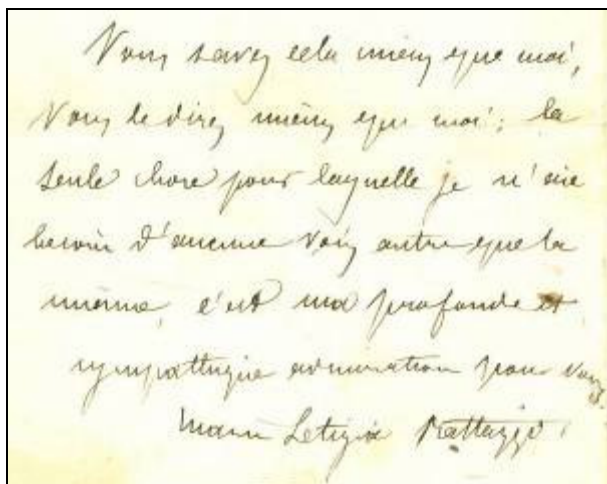 Vous savez cela mieux que moi,
Vous le direz mieux que moi; la
seule chose pour laquelle je n'aie
besoin d'aucune voix autre que la
mienne, c'est ma profonde et
sympathique admiration pour vous.
Marie Letizia Rattazzi.